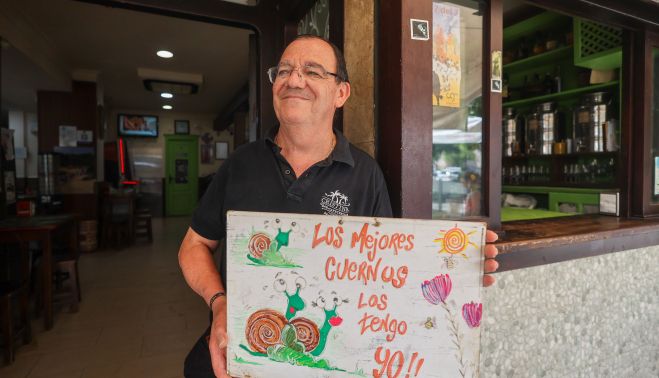 Los Mejores
CUERNOS
Los
tengo
YO!!